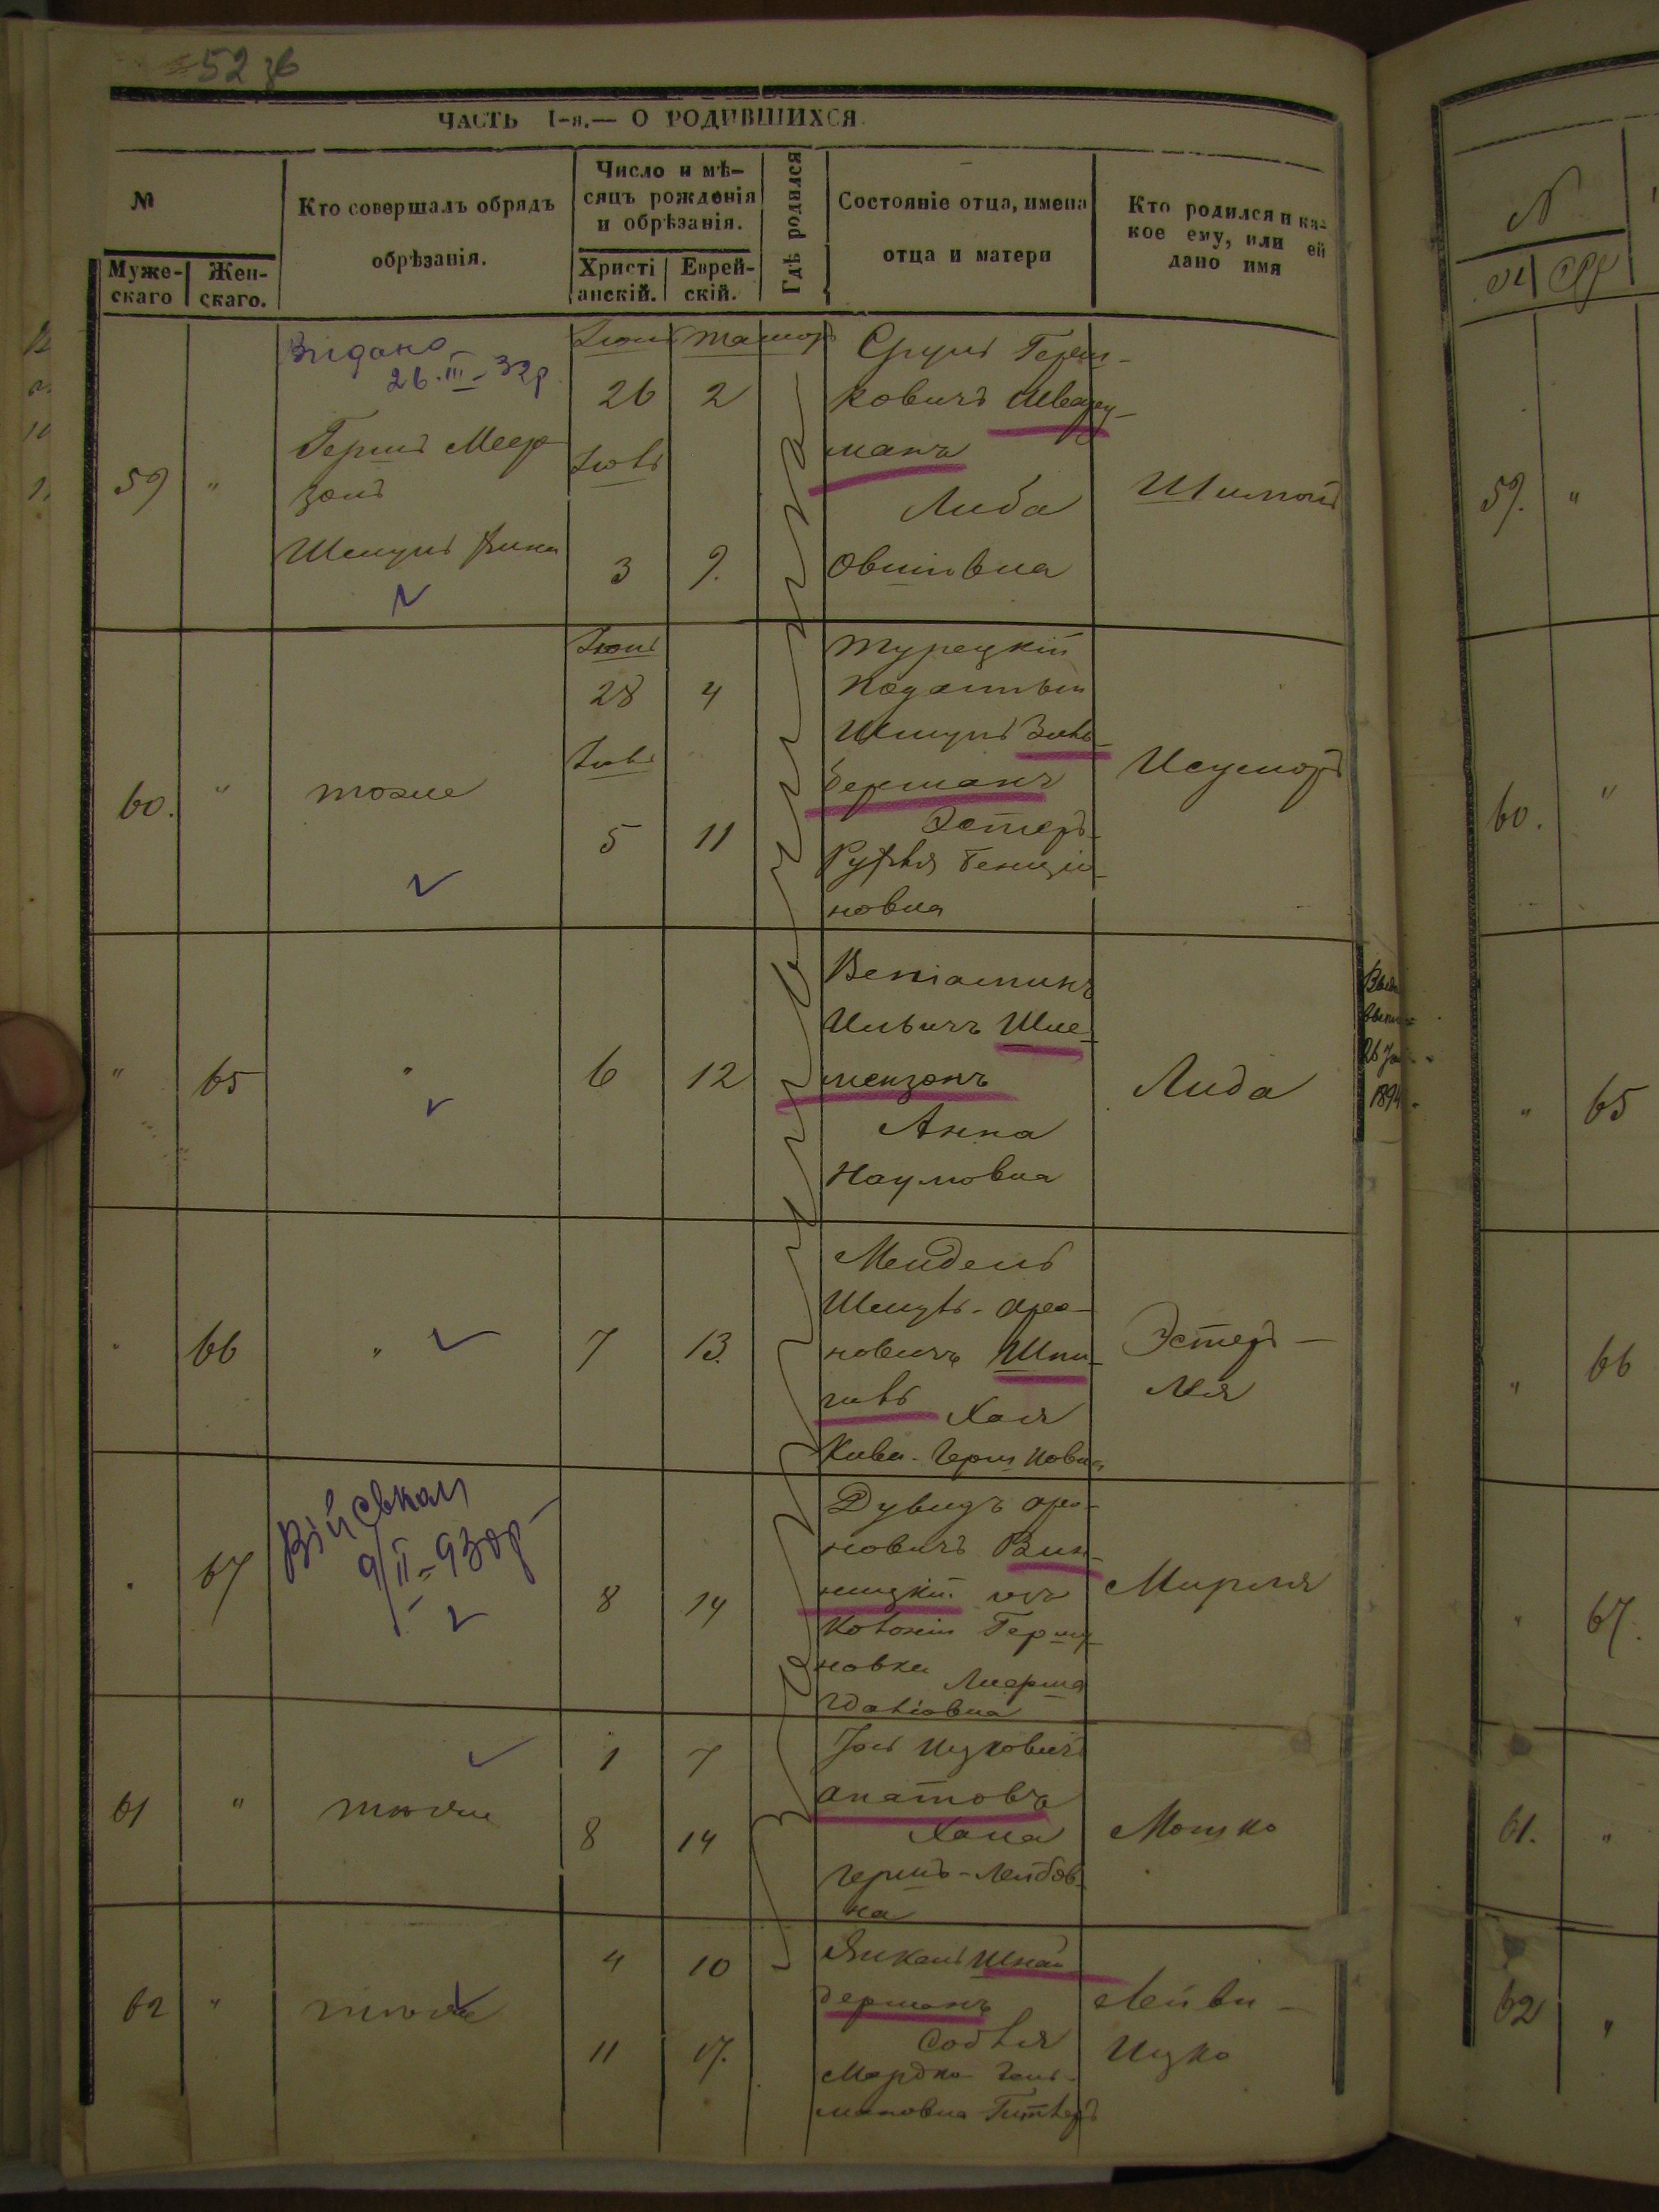 52 зв
ЧАСТЬ I-я.— О РОДИВШИХСЯ
№
Муже-
скаго
Жен-
скаго.
Кто совершалъ обрядъ
обрѣзанія.
Число и мѣ-
сяцъ рожденія
и обрѣзанія.
Христі
анскій.
Еврей-
скій.
Гдѣ родился
Состояніе отца, имена
отца и матери
Кто родился и ка-
кое ему, или ей
дано имя
59
"
Видано
26.III-32р.
Гершъ Меер-
зонъ
Шмуль
Іюнь
26
Іюль
3
2
9.
Сруль Герш-
ковичъ Шварц-
манъ
Либа
Шимонъ
60.
"
тоже
Іюнь
28
Іюль
5
4
11
Турецкій
Шмуль Зиль-
берманъ
Эстеръ-
Рухля Бенціо-
новна
"
65
"
6
12
Веніаминъ
Ильичъ Шле-
мензонъ
Анна
Наумовна
Лида
"
66
"
7
13.
Мендель
Шмуль-Аро-
новичъ Шпи-
гель
Хая
Эстеръ-
Лея
"
67
Військом
9/II-930р
8
14
Дувидъ Аро-
новичъ Вин-
ницкій изъ
Колоніи
новки
Мирля
61
"
тоже
1
8
7
14
Іось Ицковичъ
Анатовъ
Хана
Гершъ-Лейбов-
на
Мошко
62
"
тоже
4
11
10
17.
Янкель Шнай
дерманъ
Мордко
Лейви-
Ицко
1894
№
59.
"
60.
"
"
65
"
66
"
67.
61.
"
62
"